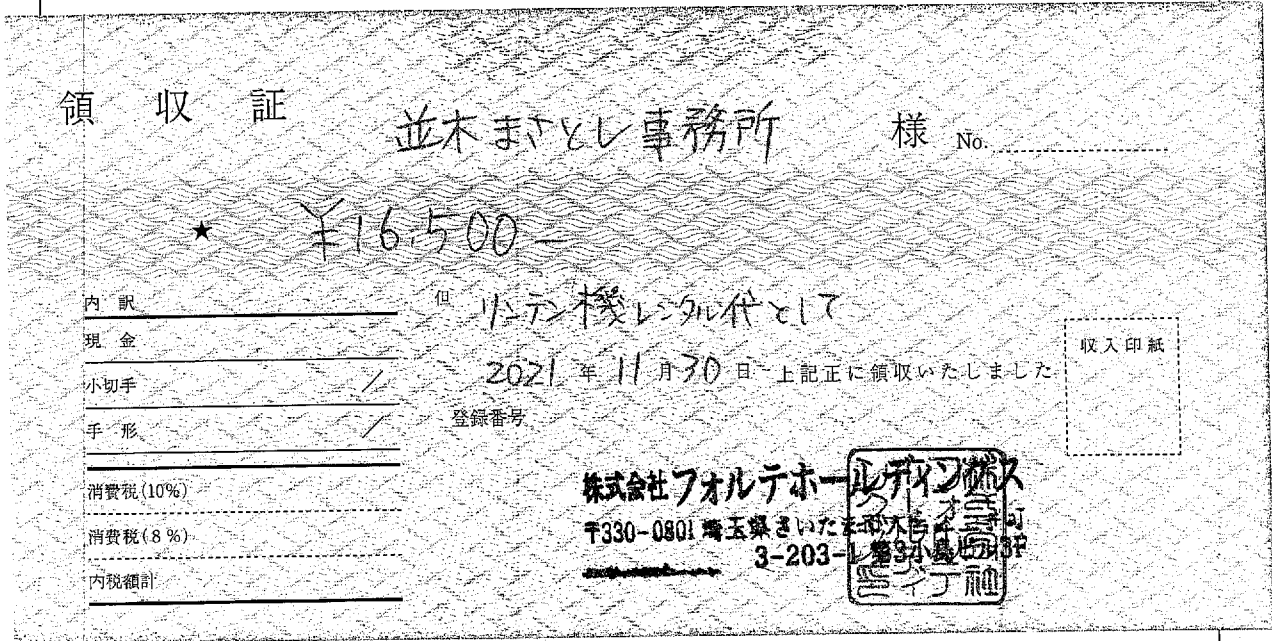 領 収 証
並木まさとし事務所 様 No.
★ ¥16,500-
内 訳
現 金
小切手 /
手 形 /
消費税(10%)
消費税(8%)
内税額計
但 リンテン機レンタル代として
2021 年 11 月 30 日 上記正に領収いたしました
登録番号
収入印紙
株式会社フォルテホールディングス
〒330-0801 埼玉県さいたま市大宮区土手町
3-203-1 第3小島ビル3F